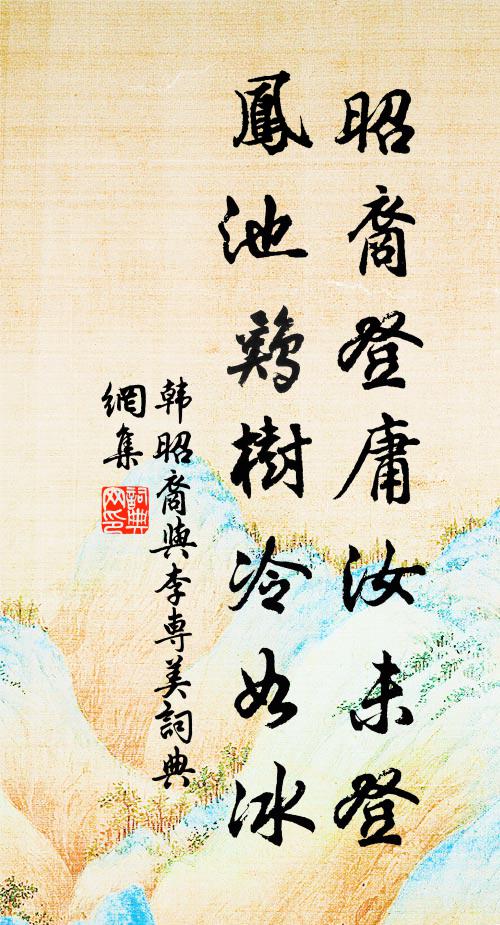 昭裔登庸汝未登
鳳池鷄樹冷如冰
韩昭裔與李専美詞典
網集
詞典
网印